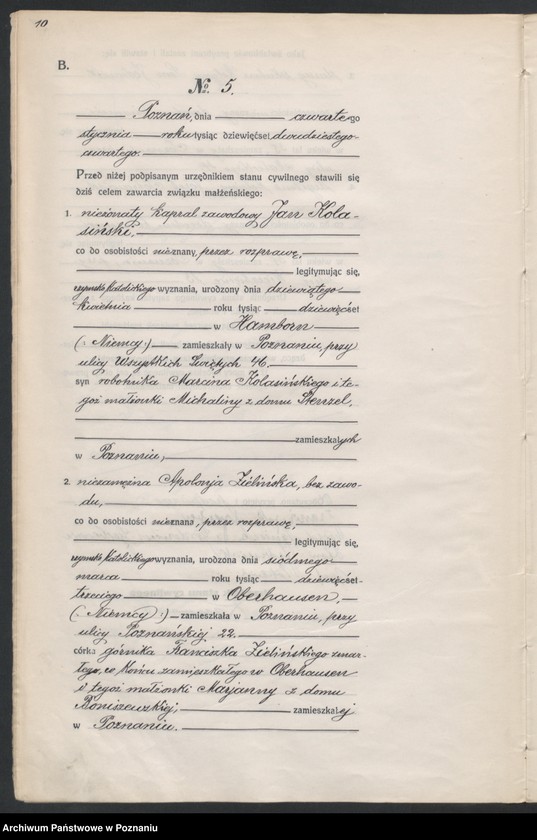 10
B.
№ 5.
Poznań, dnia czwartego
stycznia roku tysiąc dziewięćset dwudziestego
czwartego.
Przed niżej podpisanym urzędnikiem stanu cywilnego stawili się
dziś celem zawarcia związku małżeńskiego:
1. nieżonaty kapral zawodowy Jan Kola-
siński,
co do osobistości nieznany, przez rozprawę,
legitymując się,
rzymsko katolickiego wyznania, urodzony dnia dziewiątego
kwietnia roku tysiąc dziewięćset
w Hamborn
(: Niemcy :) zamieszkały w Poznaniu, przy
ulicy Wszystkich Świętych 4b.
syn robotnika Marcina Kolasińskiego i te-
goż małżonki Michaliny z domu Stenzel,
zamieszkałych
w Poznaniu,
2. niezamężna Apolonja Zielińska, bez zawo-
du,
co do osobistości nieznana, przez rozprawę,
legitymując się,
rzymsko katolickiego wyznania, urodzona dnia siódmego
marca roku tysiąc dziewięćset
trzeciego w Oberhausen,
(: Niemcy :) zamieszkała w Poznaniu, przy
ulicy Poznańskiej 22.
córka górnika Franciszka Zielińskiego zmar-
łego, co końcu zamieszkałego w Oberhausen
i tegoż małżonki Marjanny z domu
Roniszewskiej; zamieszkałej
w Poznaniu.
Archiwum Państwowe w Poznaniu